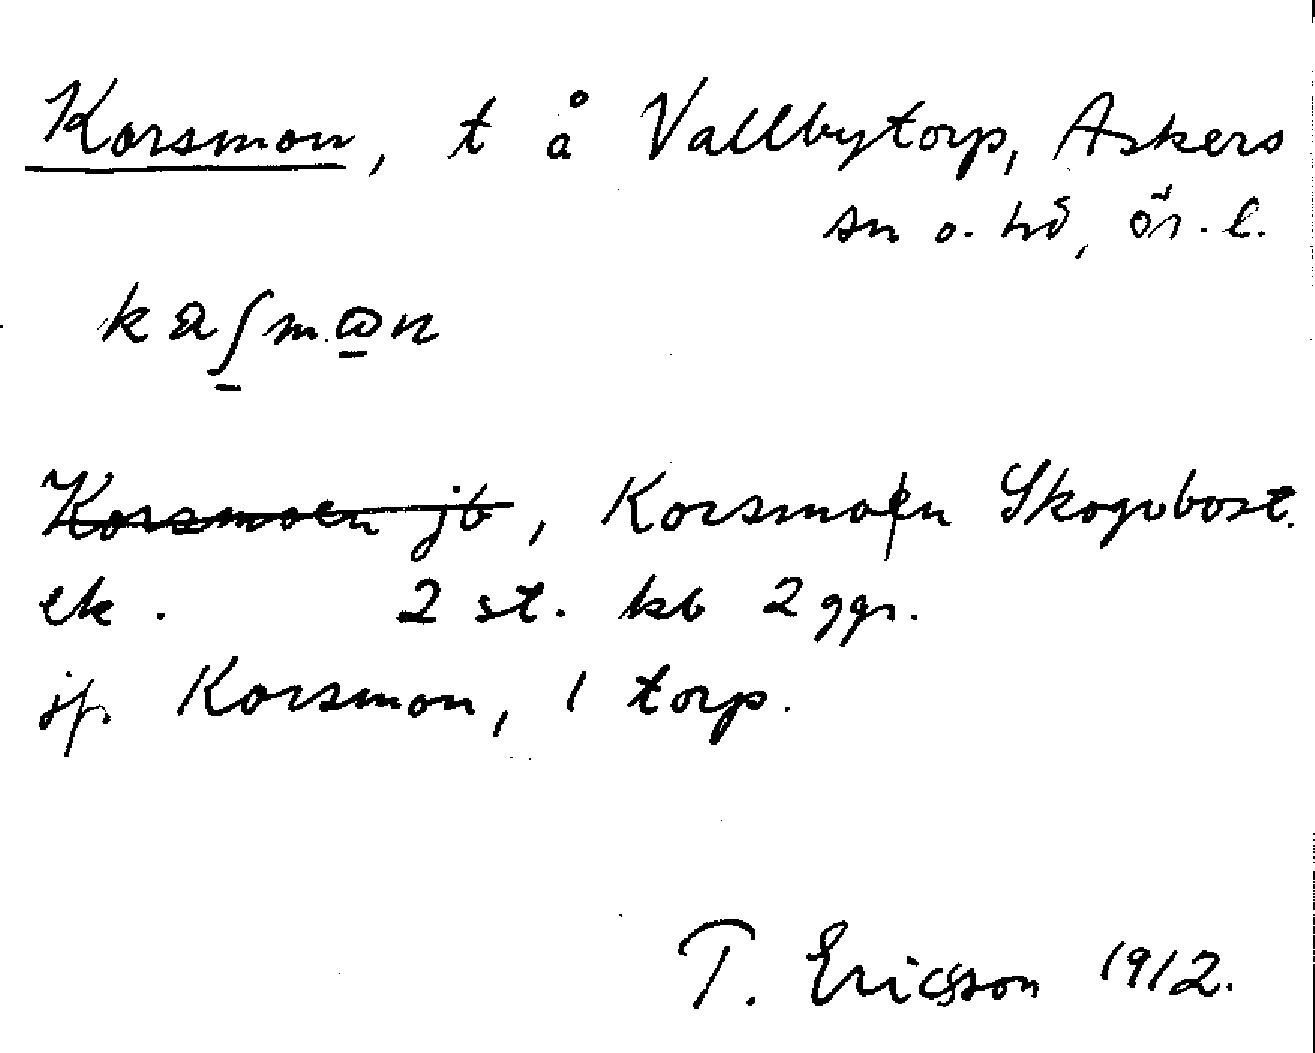 Korsmon, t å Vallbytorp, Askers
sn o. hd, ör. l.
Korsmoen jb, Korsmoen Skogvbost.
ek. 2 st. kb 2 ggr.
jfr Korsmon, 1 torp.
T. Ericsson 1912.